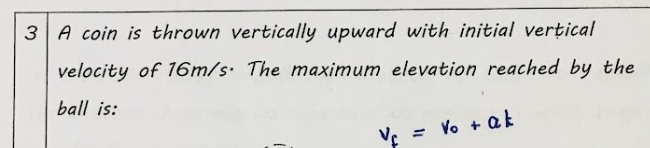 3 A coin is thrown vertically upward with initial vertical
velocity of 16m/s. The maximum elevation reached by the
ball is:
Vf = Vo + at